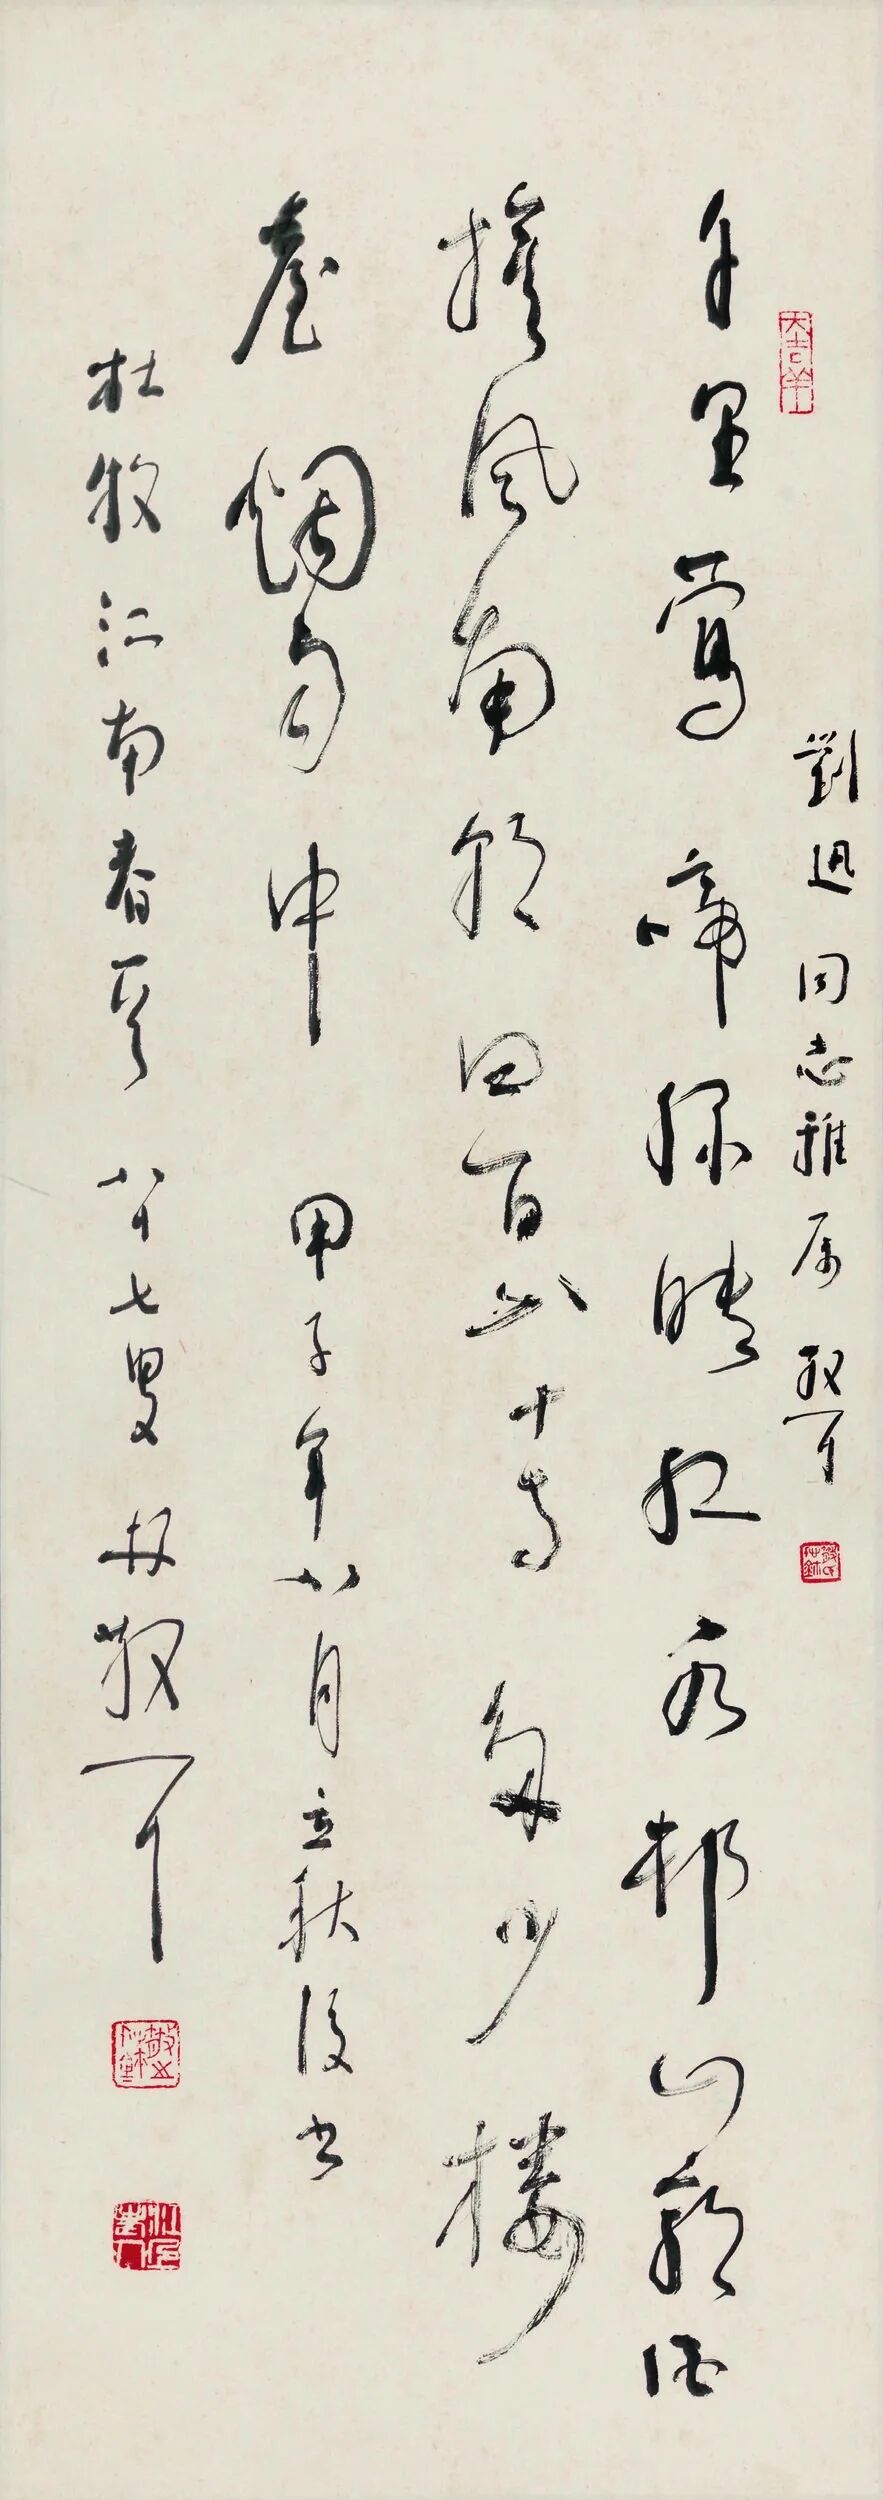 劉迅同志雅属 散耳
千里鶯啼綠映紅水邨山郭酒
旗風南朝四百八十寺多少樓
臺烟雨中 甲子年八月立秋後書
杜牧江南春一首 八十七叟林散耳
大吉羊